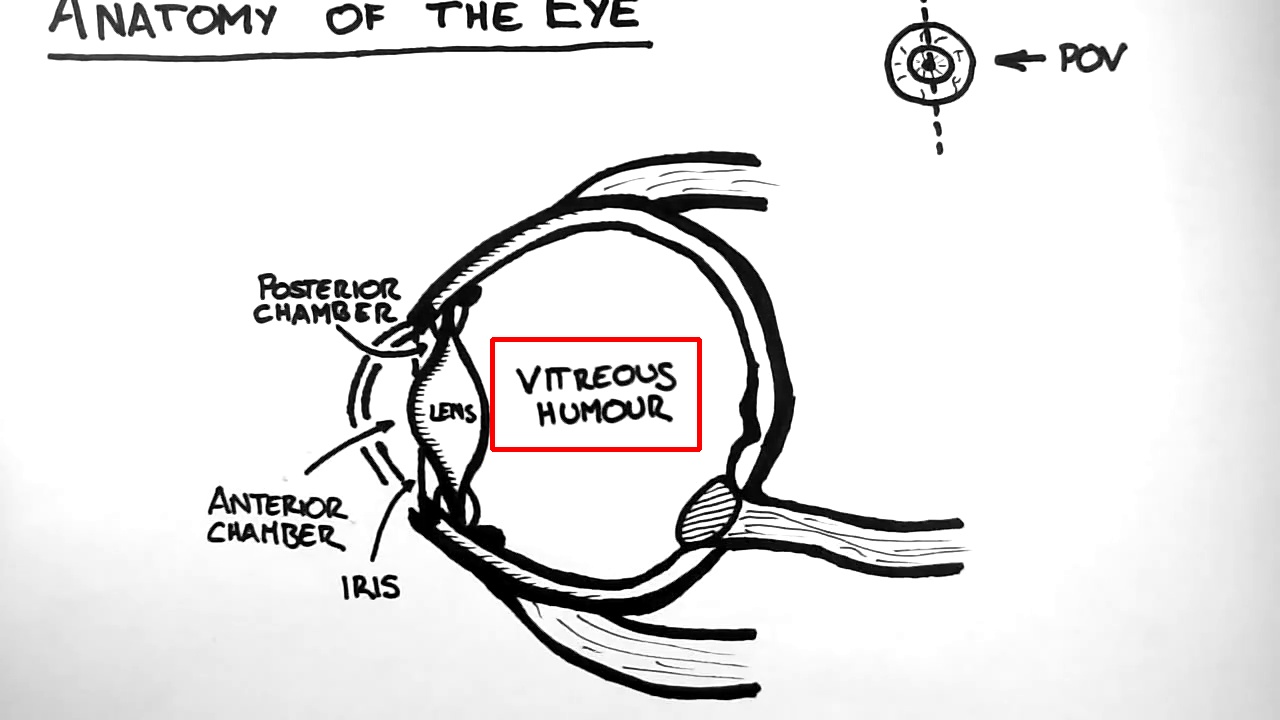 ANATOMY OF THE EYE
POV
POSTERIOR
CHAMBER
VITREOUS
HUMOUR
LENS
ANTERIOR
CHAMBER
IRIS